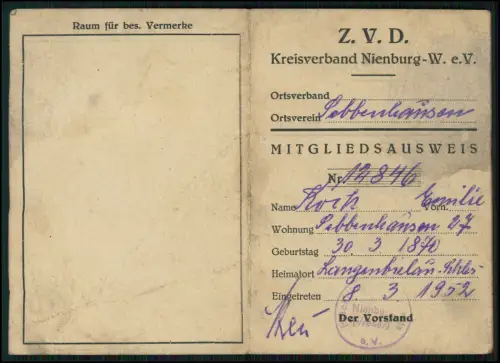 Raum für bes. Vermerke
Z. V. D.
Kreisverband Nienburg-W. e.V.
Ortsverband
Ortsverein Sebbenhausen
MITGLIEDSAUSWEIS
Nr. 12846
Name Vorn. Emilie
Wohnung Sebbenhausen 27
Geburtstag 30. 3 1870
Heimatort Langenbielau Schles
Eingetreten 8. 3. 1952
Nienburg
Der Vorstand
e. V.